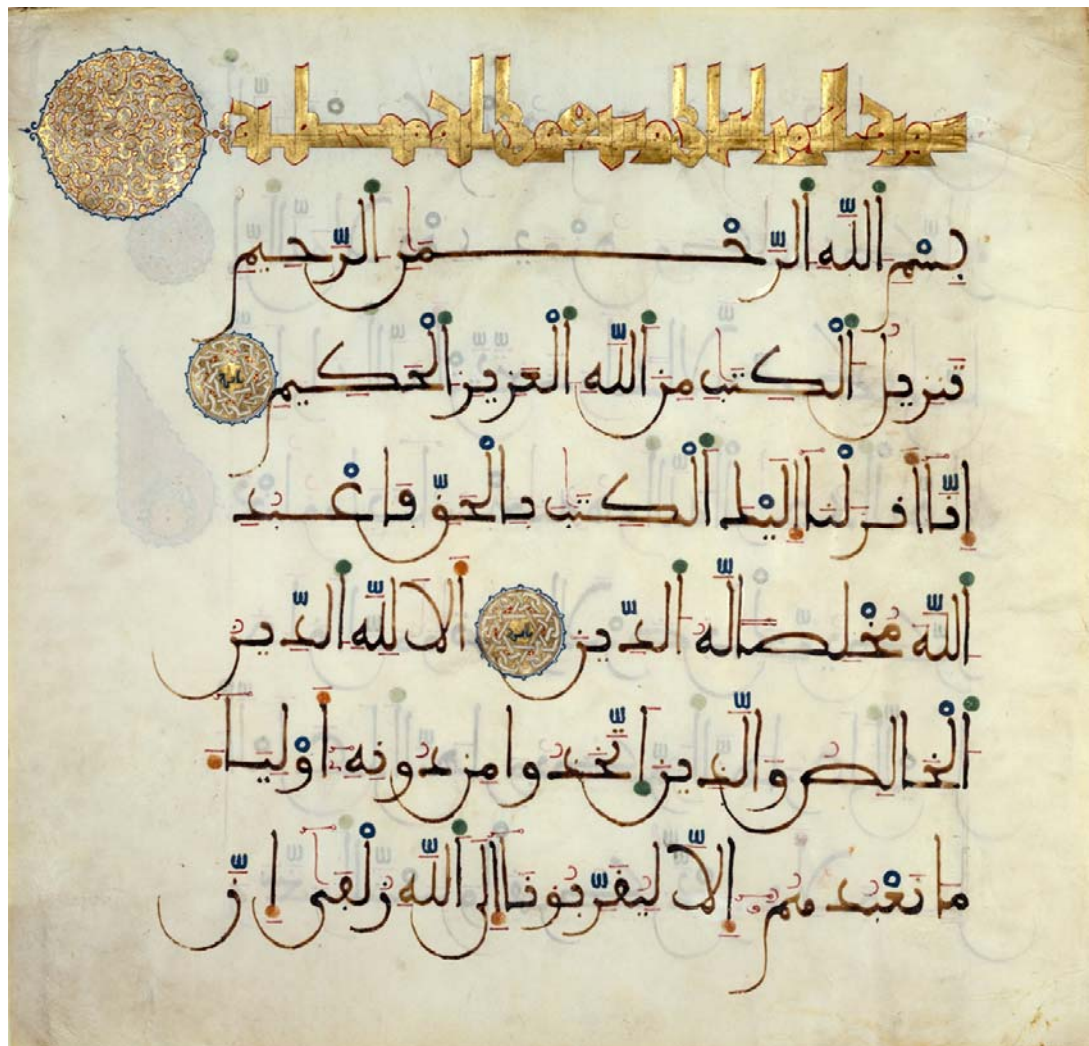 سورة الزمر وسبعون اية
بِسْمِ اللَّهِ الرَّحْمَٰنِ الرَّحِيمِ
تَنزِيلُ الْكِتَٰبِ مِنَ اللَّهِ الْعَزِيزِ الْحَكِيمِ
إِنَّا أَنزَلْنَا إِلَيْكَ الْكِتَٰبَ بِالْحَقِّ فَاعْبُدِ
اللَّهَ مُخْلِصًا لَهُ الدِّينَ أَلَا لِلَّهِ الدِّينُ
الْخَالِصُ وَالَّذِينَ اتَّخَذُوا مِن دُونِهِ أَوْلِيَاءَ
مَا نَعْبُدُهُمُ إِلَّا لِيُقَرِّبُونَا إِلَى اللَّهِ زُلْفَىٰ إِنَّ